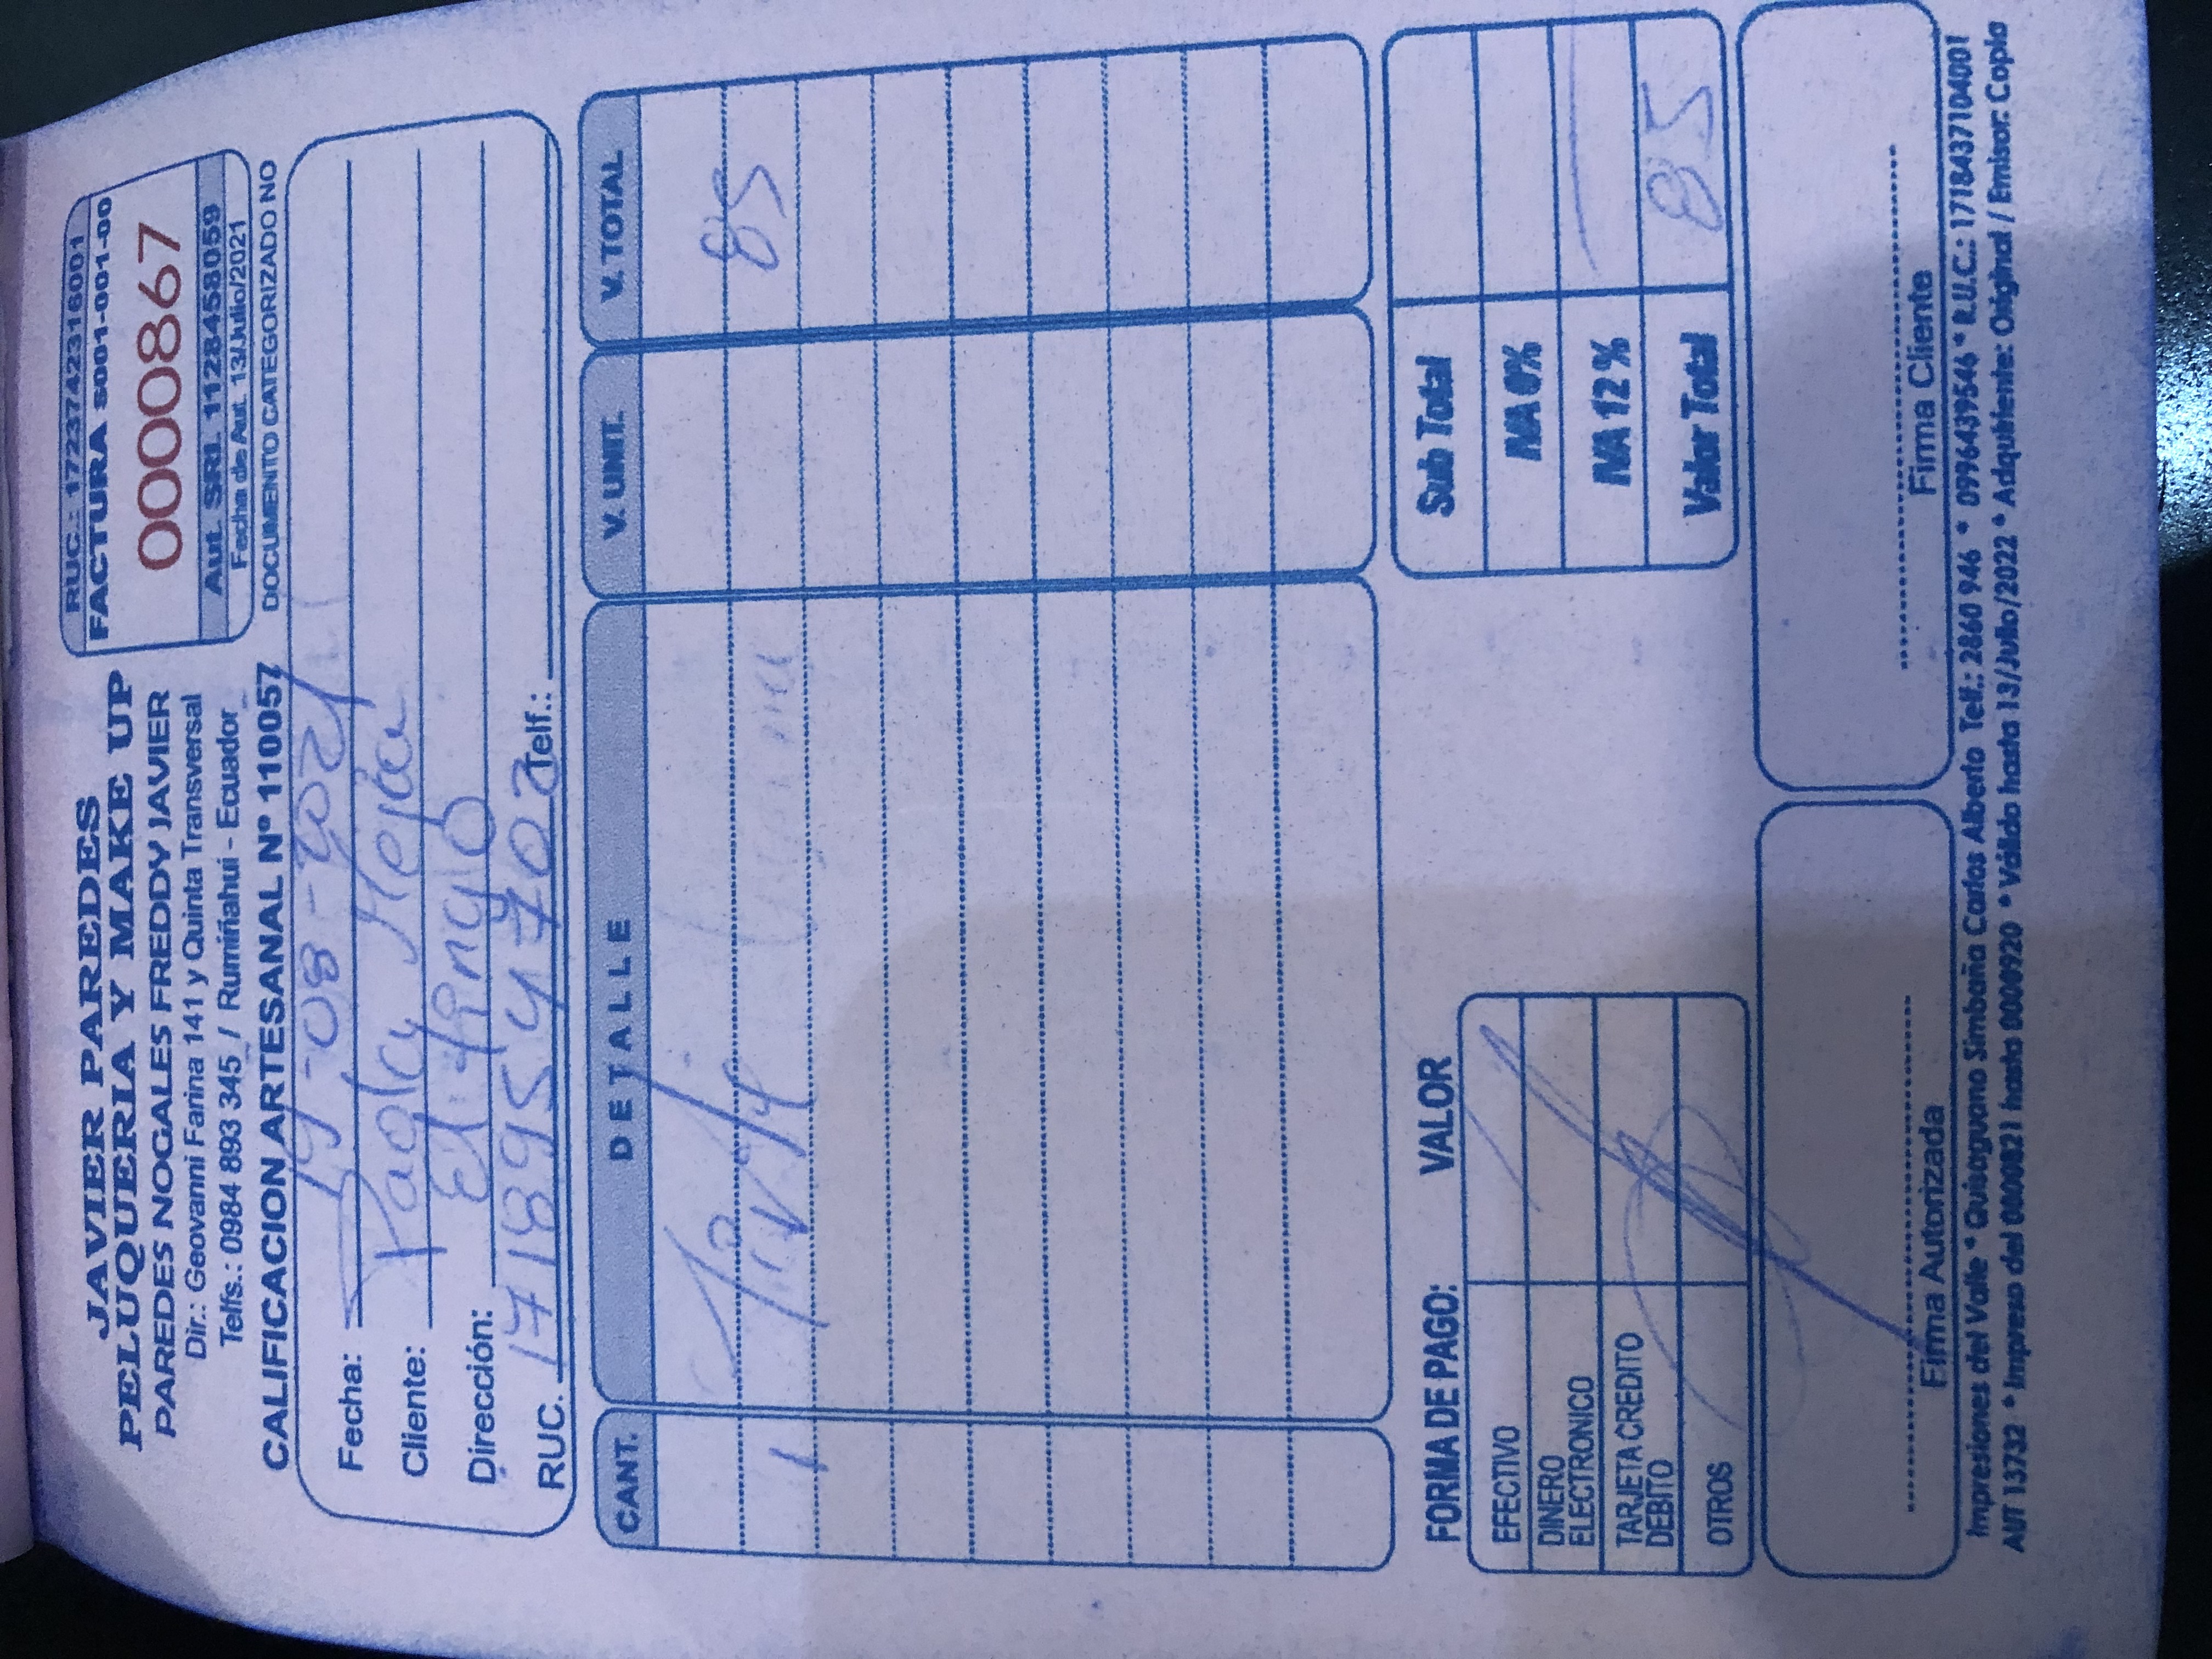 JAVIER PAREDES
PELUQUERIA Y MAKE UP
PAREDES NOGALES FREDDY JAVIER
Dir.: Geovanni Farina 141 y Quinta Transversal
Telfs.: 0984 893 345 / Rumiñahui - Ecuador
CALIFICACION ARTESANAL Nº 110057
RUC.: 1723742316001
FACTURA S001-001-00
0000867
Aut. SRI. 1128458059
Fecha de Aut. 13/Julio/2021
DOCUMENTO CATEGORIZADO NO
Fecha: 19-08-2021
Cliente: Paola Mejia
Dirección: El tingo
RUC. 1718954702 Telf.:
CANT. DETALLE V. UNIT. V. TOTAL
1 85
FORMA DE PAGO: VALOR
EFECTIVO
DINERO
ELECTRONICO
TARJETA CREDITO
DEBITO
OTROS
Sub Total
IVA 0%
IVA 12 %
Valor Total 85
Firma Autorizada
Firma Cliente
Impresiones del Valle * Quisaguano Simbaña Carlos Alberto Telf.: 2860 946 * 0996439546 * R.U.C.: 1718437104001
AUT 13732 * Impreso del 0000821 hasta 0000920 * Válido hasta 13/Julio/2022 * Adquiriente: Original / Emisor: Copia